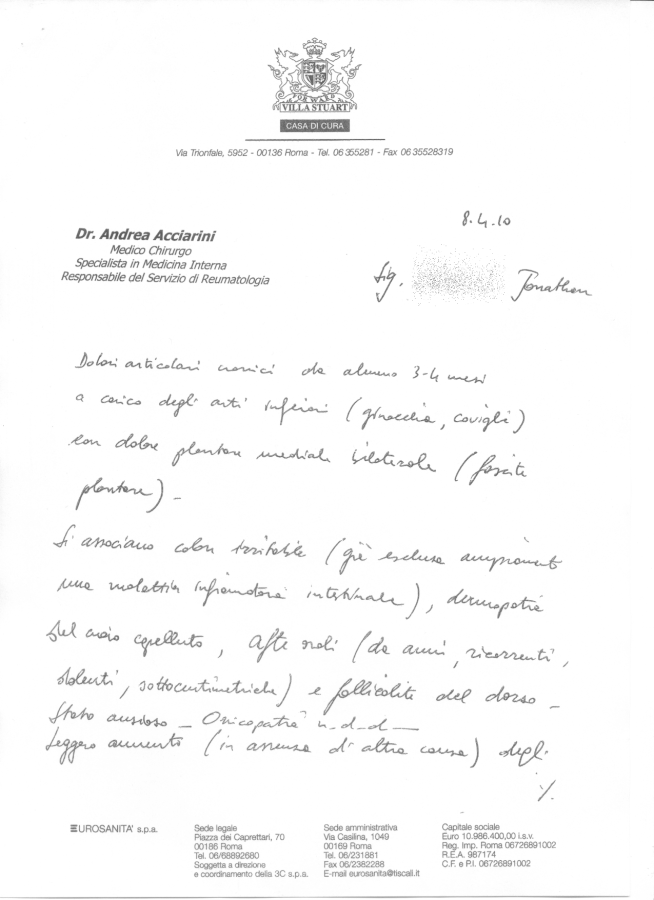 FORWARD
VILLA STUART
CASA DI CURA
Via Trionfale, 5952 - 00136 Roma - Tel. 06 355281 - Fax 06 35528319
8.4.10
Dr. Andrea Acciarini
Medico Chirurgo
Specialista in Medicina Interna
Responsabile del Servizio di Reumatologia
Sig. Jonathan
Dolori articolari cronici da almeno 3-4 mesi
a carico degli arti inferiori (ginocchia, caviglie)
con dolore plantare mediale bilaterale (fascite
plantare) -
Si associano colon irritabile (già esclusa ampiamente
una malattia infiammatoria intestinale), dermopatia
del cuoio capelluto, afte orali (da anni, ricorrenti,
dolenti, sottocentimetriche) e follicolite del dorso -
Stato ansioso - Onicopatia n-d-d-
Leggero aumento (in assenza di altra causa) degli
%.
EUROSANITA' s.p.a.
Sede legale
Piazza dei Caprettari, 70
00186 Roma
Tel. 06/68892680
Soggetta a direzione
e coordinamento della 3C s.p.a.
Sede amministrativa
Via Casilina, 1049
00169 Roma
Tel. 06/231881
Fax 06/2382288
E-mail eurosanita@tiscali.it
Capitale sociale
Euro 10.986.400,00 i.s.v.
Reg. Imp. Roma 06726891002
R.E.A. 987174
C.F. e P.I. 06726891002